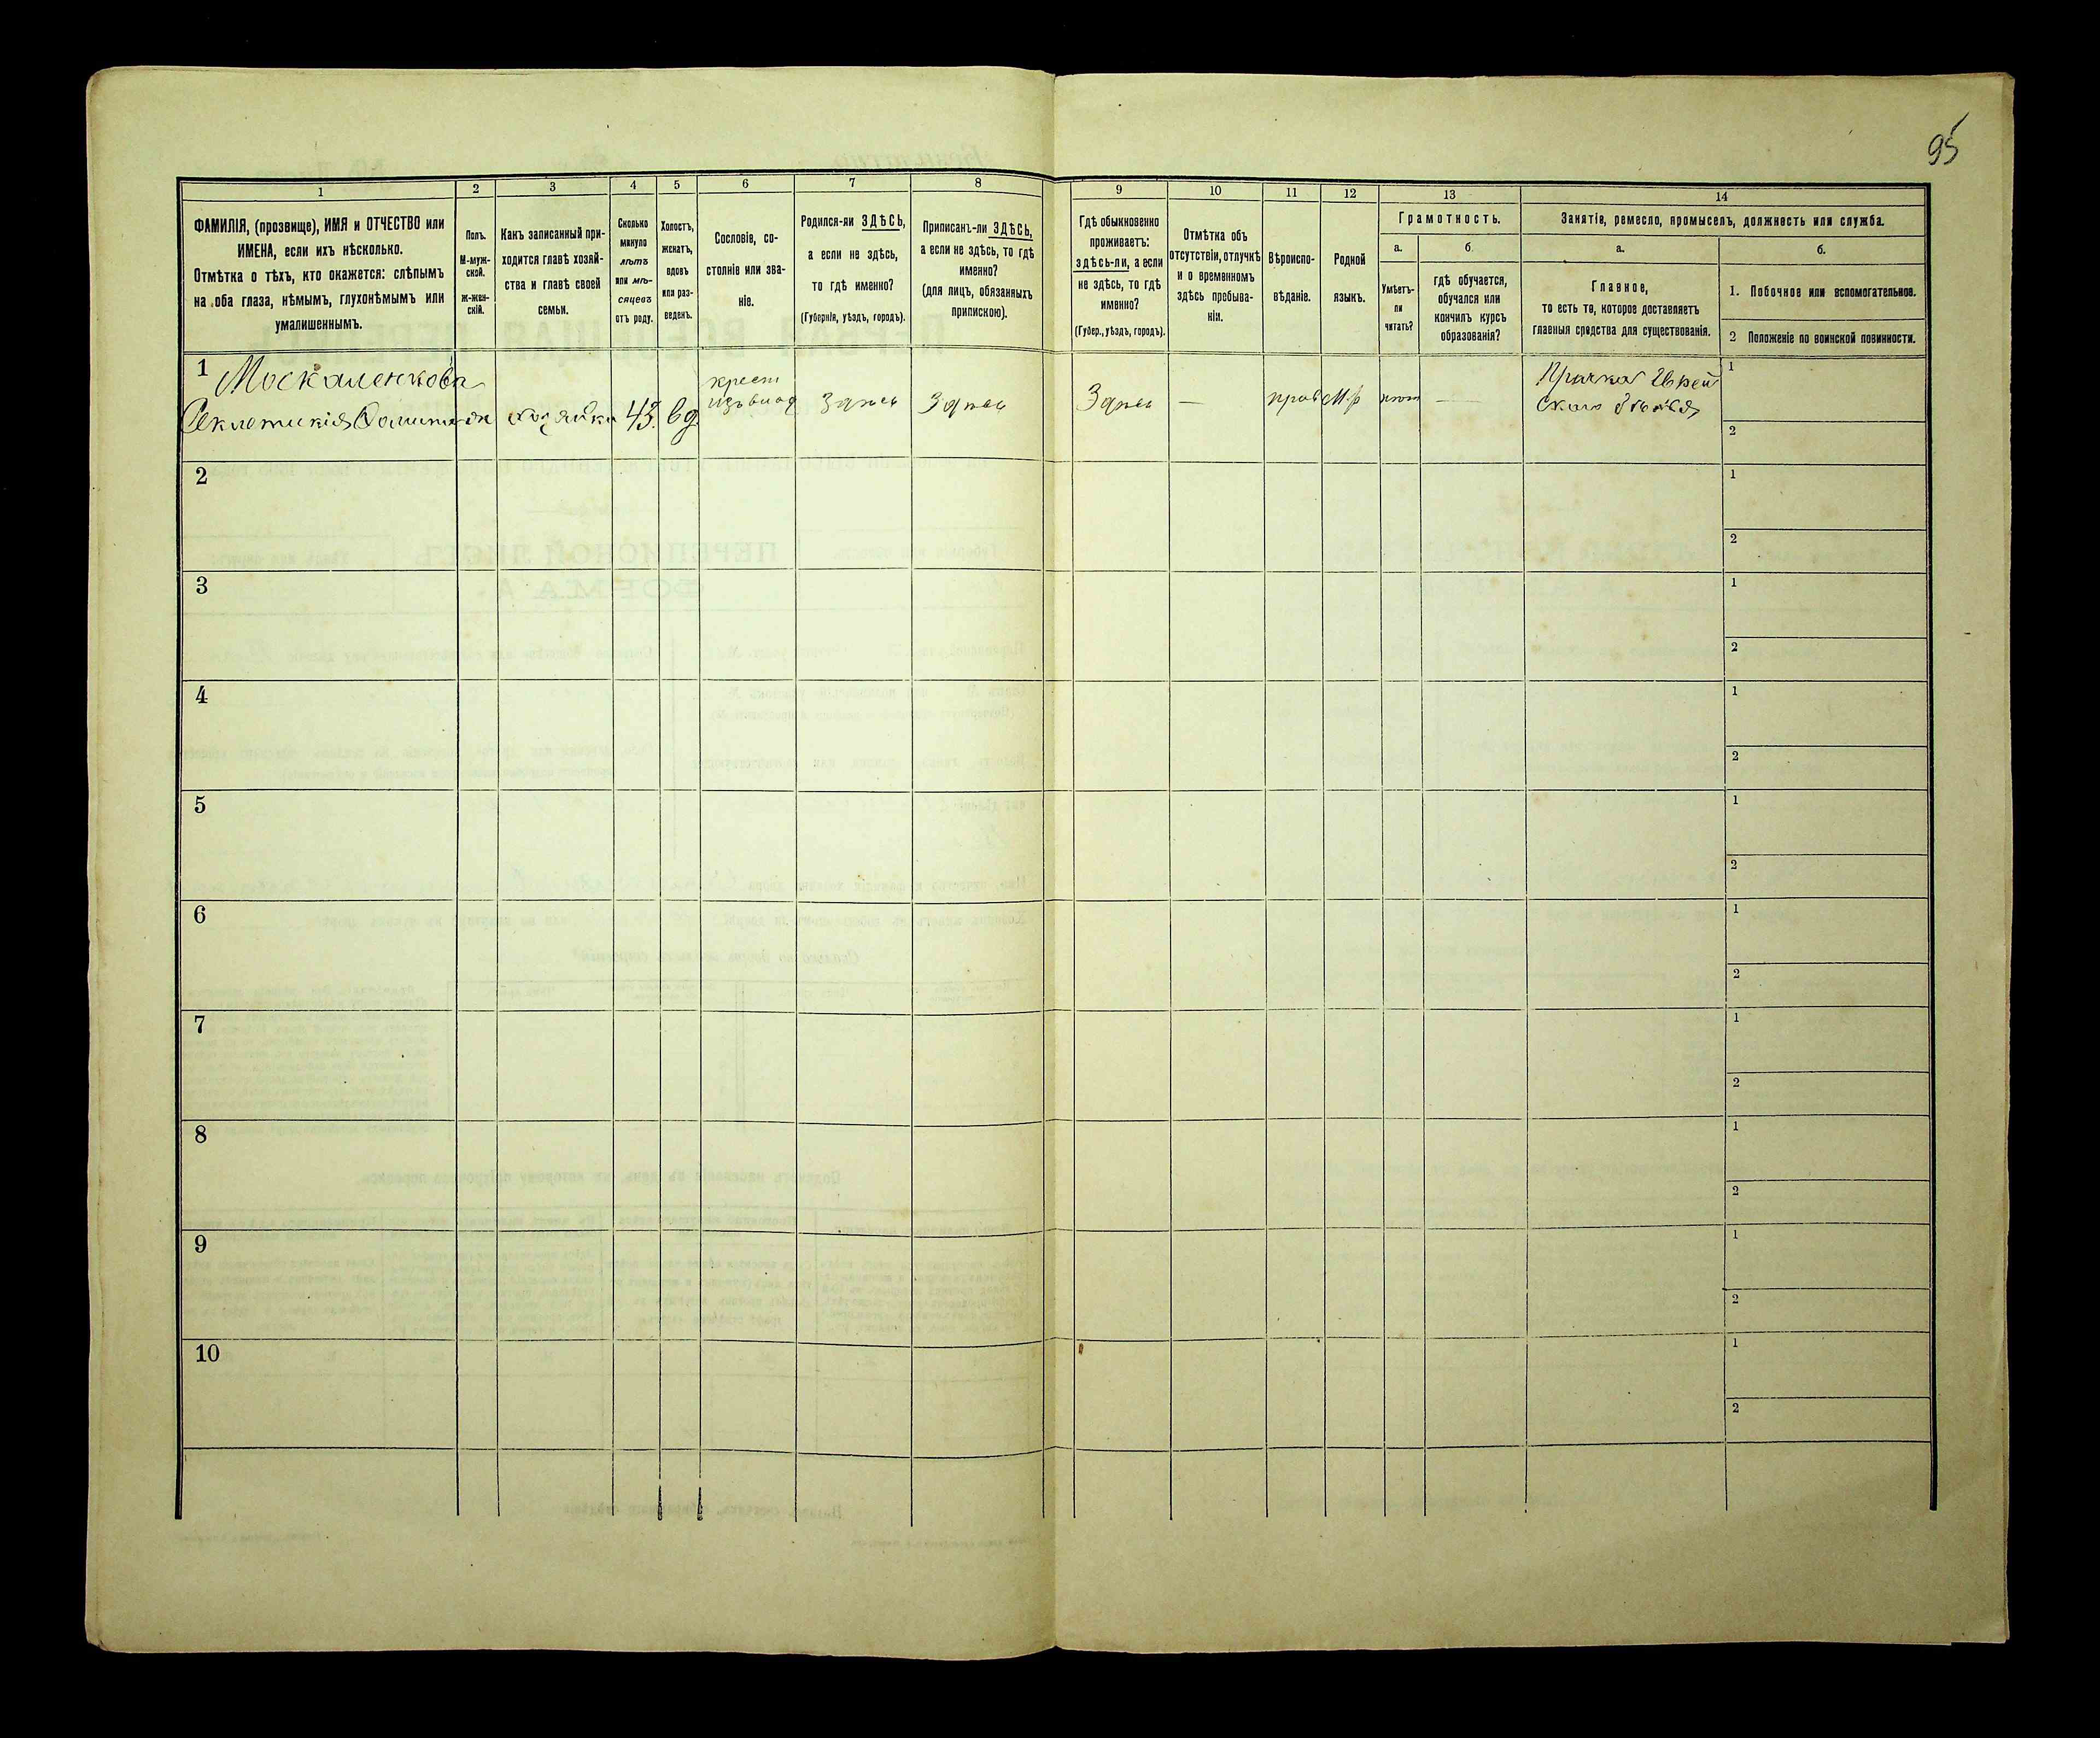 95
1 2 3 4 5 6 7 8 9 10 11 12 13 14
ФАМИЛІЯ, (прозвище), ИМЯ и ОТЧЕСТВО или
ИМЕНА, если ихъ нѣсколько.
Отмѣтка о тѣхъ, кто окажется: слѣпымъ
на оба глаза, нѣмымъ, глухонѣмымъ или
умалишеннымъ.
Полъ.
М-муж-
ской.
ж-жен-
скій.
Какъ записанный при-
ходится главѣ хозяй-
ства и главѣ своей
семьи.
Сколько
минуло
лѣтъ
или мѣ-
сяцевъ
отъ роду.
Холостъ,
женатъ,
вдовъ
или раз-
веденъ.
Сословіе, со-
стояніе или зва-
ніе.
Родился-ли ЗДѢСЬ,
а если не здѣсь,
то гдѣ именно?
(Губернія, уѣздъ, городъ).
Приписанъ-ли ЗДѢСЬ,
а если не здѣсь, то гдѣ
именно?
(для лицъ, обязанныхъ
припискою).
Гдѣ обыкновенно
проживаетъ:
здѣсь-ли, а если
не здѣсь, то гдѣ
именно?
(Губер., уѣздъ, городъ).
Отмѣтка объ
отсутствіи, отлучкѣ
и о временномъ
здѣсь пребыва-
ніи.
Вѣроиспо-
вѣданіе.
Родной
языкъ.
Грамотность.
а. б.
Умѣетъ-
ли
читать?
гдѣ обучается,
обучался или
кончилъ курсъ
образованія?
Занятіе, ремесло, промыселъ, должность или служба.
а. б.
Главное,
то есть то, которое доставляетъ
главныя средства для существованія.
1. Побочное или вспомогательное.
2 Положеніе по воинской повинности.
1 Москаленкова
хозяйка 43 вд
крест
изъ влад
Здѣсь Здѣсь Здѣсь — прав М.р нѣт —
Прачка Еврей
скаго
1
2
2
1
2
3
1
2
4
1
2
5
1
2
6
1
2
7
1
2
8
1
2
9
1
2
10
1
2